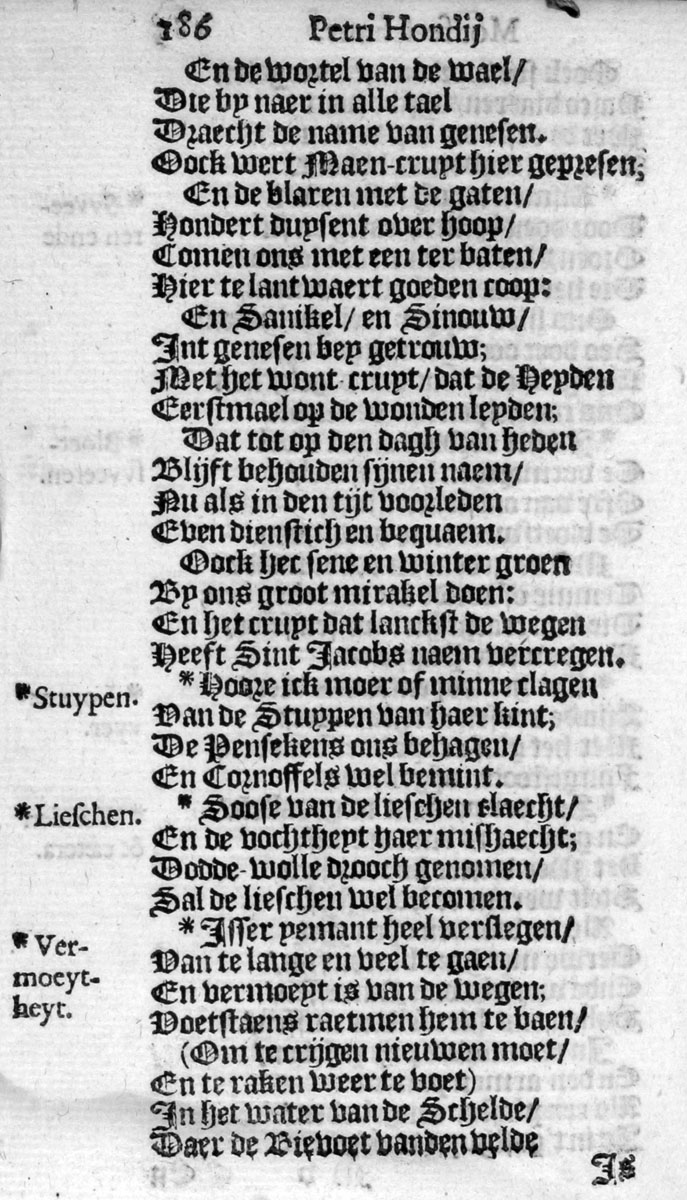 186 Petri Hondij
En de wortel van de wael/
Die by naer in alle tael
Draecht de name van genesen.
Oock wert Maen-cruyt hier gepresen;
En de blaren met de gaten/
Hondert duysent over hoop/
Comen ons met een ter baten/
Hier te lantwaert goeden coop:
En Sanikel/ en Sinouw/
Int genesen bey getrouw;
Met het wont-cruyt/ dat de Heyden
Eerstmael op de wonden leyden;
Dat tot op den dagh van heden
Blijft behouden sijnen naem/
Nu als in den tijt voorleden
Even dienstich en bequaem.
Oock hec sene en winter groen
By ons groot mirakel doen:
En het cruyt dat lanckst de wegen
Heeft Sint Jacobs naem vercregen.
*Stuypen.
*Hoore ick moer of minne clagen
Van de Stuypen van haer kint;
De Pensekens ons behagen/
En Cornoffels wel bemint.
*Lieschen.
* Soose van de lieschen claecht/
En de vochtheyt haer mishaecht;
Dodde-wolle drooch genomen/
Sal de lieschen wel becomen.
* Vermoeytheyt.
* Isser yemant heel verslegen/
Van te lange en veel te gaen/
En vermoeyt is van de wegen;
Voetstaens raetmen hem te baen/
(Om te crijgen nieuwen moet/
En te raken weer te voet)
In het water van de Schelde/
Daer de Bievoet vanden velde
Is